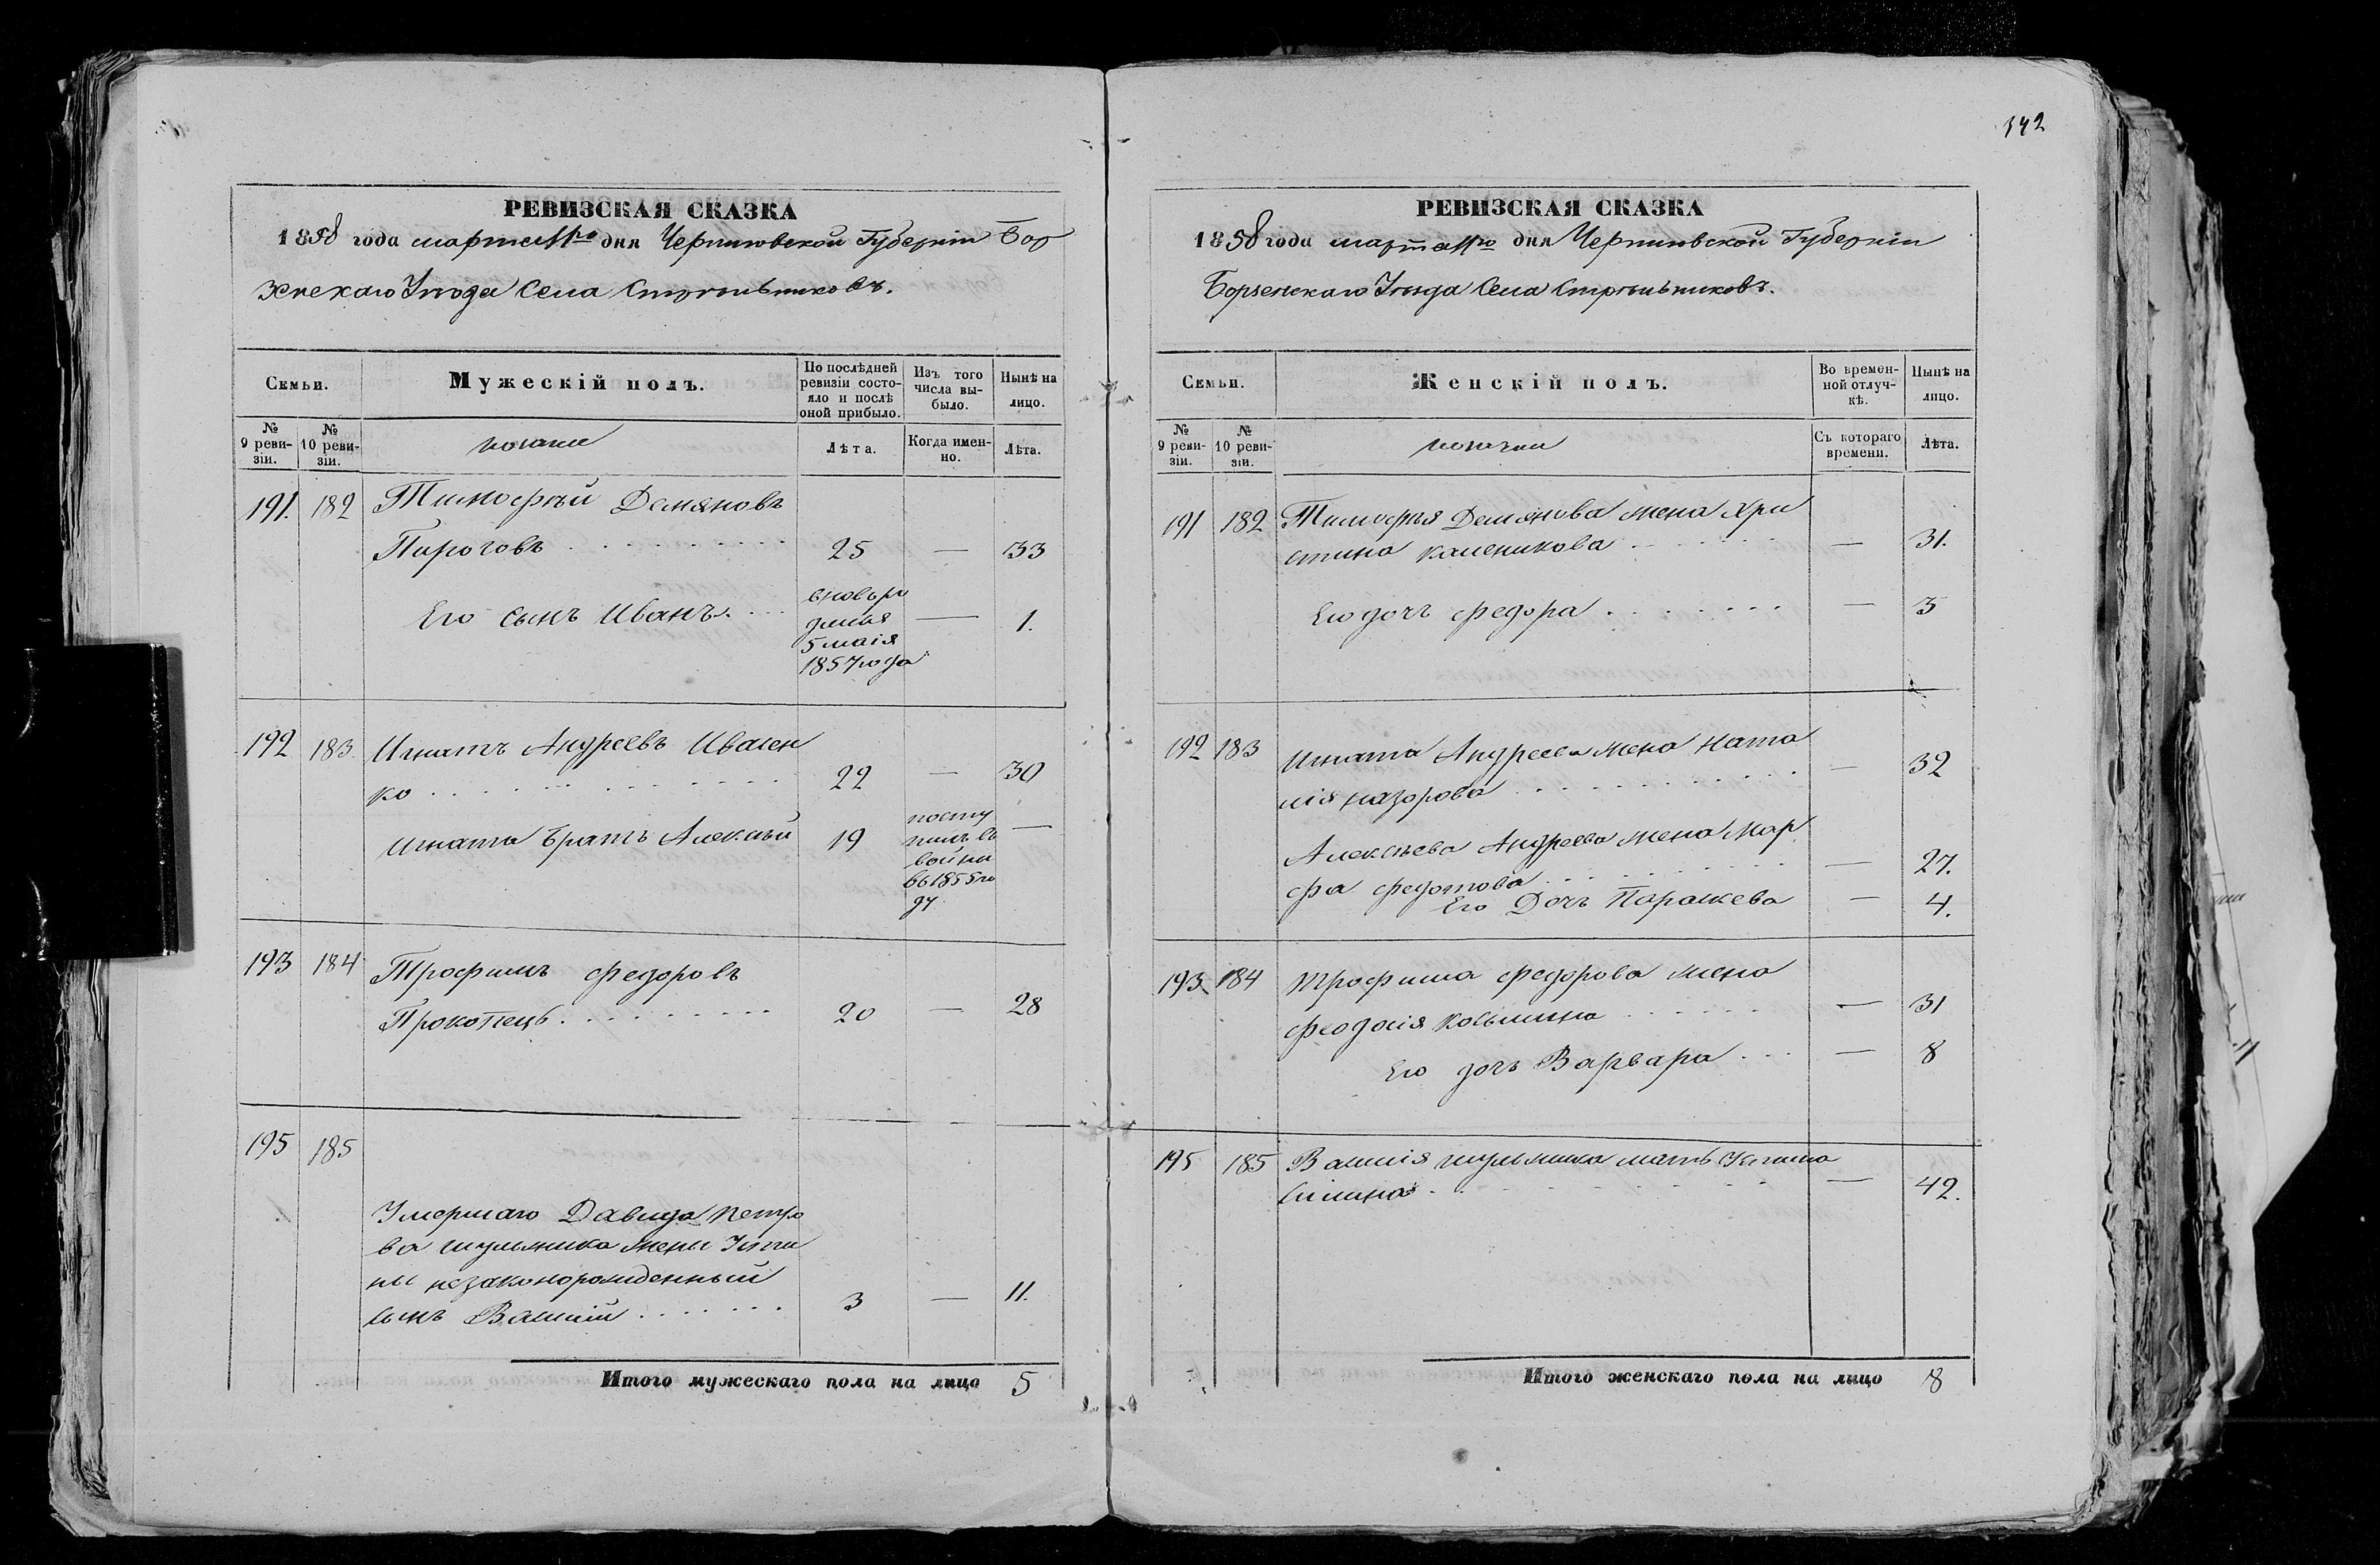 342
РЕВИЗСКАЯ СКАЗКА
1858 года марта дня Черниговской Губерніи Бор
зенскаго Уезда Села Стрельниковъ.
Семьи.
Мужескій полъ.
По послѣдней ревизіи состояло и послѣ оной прибыло.
Изъ того числа выбыло.
Нынѣ на лицо.
№ 9 ревизіи.
№ 10 ревизіи.
козаки
Лѣта.
Когда именно.
Лѣта.
191. 182 Тимофѣй Демяновъ
Пироговъ 25 — 33
Его сынъ Иванъ. вновь ро
5 маія
1857 года — 1.
192 183 Игнатъ Андреевъ Ивахен
ко 22 — 30
Игната братъ Алексѣй 19 посту
пилъ въ
войн
въ 1855 го
ду —
193 184 Трофимъ Федоровъ
Прокопецъ 20 — 28
195 185
Умершаго Давида Петро
ва жены
ны незаконорожденный
сынъ Василій 3 — 11.
Итого мужескаго пола на лицо 5
РЕВИЗСКАЯ СКАЗКА
1858 года марта дня Черниговской Губерніи
Борзенскаго Уезда Села Стрельниковъ.
Семьи.
Женскій полъ.
Во временной отлучкѣ.
Нынѣ на лицо.
№ 9 ревизіи.
№ 10 ревизіи.
козачки
Съ котораго времени.
Лѣта.
191 182 Тимофея Демянова жена Хри
стина Каленикова — 31.
Его дочь Федора — 3
192 183 Игната Андреева жена Ната
лія Назарова — 32
Алексѣева Андреева жена Мар
фа Федотова — 27.
Его Дочь Параскева — 4.
193 184 Трофима Федорова жена
Феодосія Козьмина — 31
Его дочь Варвара — 8
195 185 Василія мать
— 42.
Итого женскаго пола на лицо 8